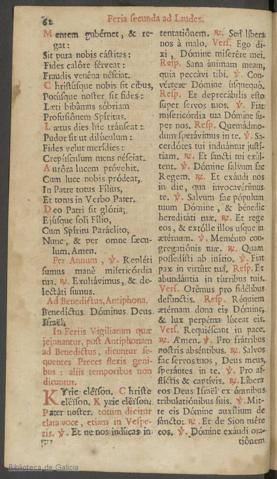 62
Feria secunda ad Laudes.
Mentem gubérnet, & re-
gat:
Sit pura nobis cástitas:
Fides calóre férveat:
Fraudis venéna nésciat.
Christúsque nobis sit cibus,
Potúsque noster sit fides:
Læti bibámus sóbriam
Profusiónem Spíritus.
Lætus dies hic tránseat:
Pudor sit ut dilúculum:
Fides velut merídies:
Crepúsculum mens nésciat.
Auróra lucem próvehit,
Cum luce nobis pródeat,
In Patre totus Fílius,
Et totus in Verbo Pater.
Deo Patri sit glória;
Ejúsque soli Fílio,
Cum Spíritu Paráclito,
Nunc, & per omne sæcu-
lum. Amen.
Per Annum, ℣. Repléti
sumus manè misericórdia
tua. ℟. Exultávimus, & de-
lectáti sumus.
Ad Benedictus, Antiphona.
Benedíctus Dóminus Deus
Israël.
In Feriis Vigiliarum quæ
jejunantur, post Antiphonam
ad Benedictus, dicuntur se-
quentes Preces flexis geni-
bus: aliis temporibus non
dicuntur.
Kyrie eléison. Christe
eléison. Kyrie eléison.
Pater noster. totum dicitur
clara voce, etiam in Vespe-
ris. ℣. Et ne nos indúcas in
tentatiónem. ℟. Sed líbera
nos à malo. Vers. Ego di-
xi, Dómine miserére mei.
Resp. Sana ánimam meam,
quia peccávi tibi. ℣. Con-
vértere Dómine úsquequò.
Resp. Et deprecábilis esto
super servos tuos. ℣. Fiat
misericórdia tua Dómine su-
per nos. Resp. Quemádmo-
dum sperávimus in te. ℣. Sa-
cerdótes tui induántur justí-
tiam. ℟. Et sancti tui exúl-
tent. ℣. Dómine salvum fac
Regem. ℟. Et exáudi nos
in die, qua invocavérimus
te. ℣. Salvum fac pópulum
tuum Dómine, & bénedic
hereditáti tuæ. ℟. Et rege
eos, & extólle illos usque in
ætérnum. ℣. Meménto con-
gregatiónis tuæ. ℟. Quam
possedísti ab inítio. ℣. Fiat
pax in virtúte tua. Resp. Et
abundántia in túrribus tuis.
Vers. Orémus pro fidélibus
defúnctis. Resp. Réquiem
ætérnam dona eis Dómine,
& lux perpétua lúceat eis.
Vers. Requiéscant in pace.
℟. Amen. ℣. Pro frátribus
nostris abséntibus. ℟. Salvos
fac servos tuos, Deus meus,
sperántes in te. ℣. Pro af-
flíctis & captívis. ℟. Líbera
eos Deus Israël ex ómnibus
tribulatiónibus suis. ℣. Mit-
te eis Dómine auxílium de
sancto: ℟. Et de Sion tuére
eos. ℣. Dómine exáudi ora-
tiónem
Biblioteca de Galicia